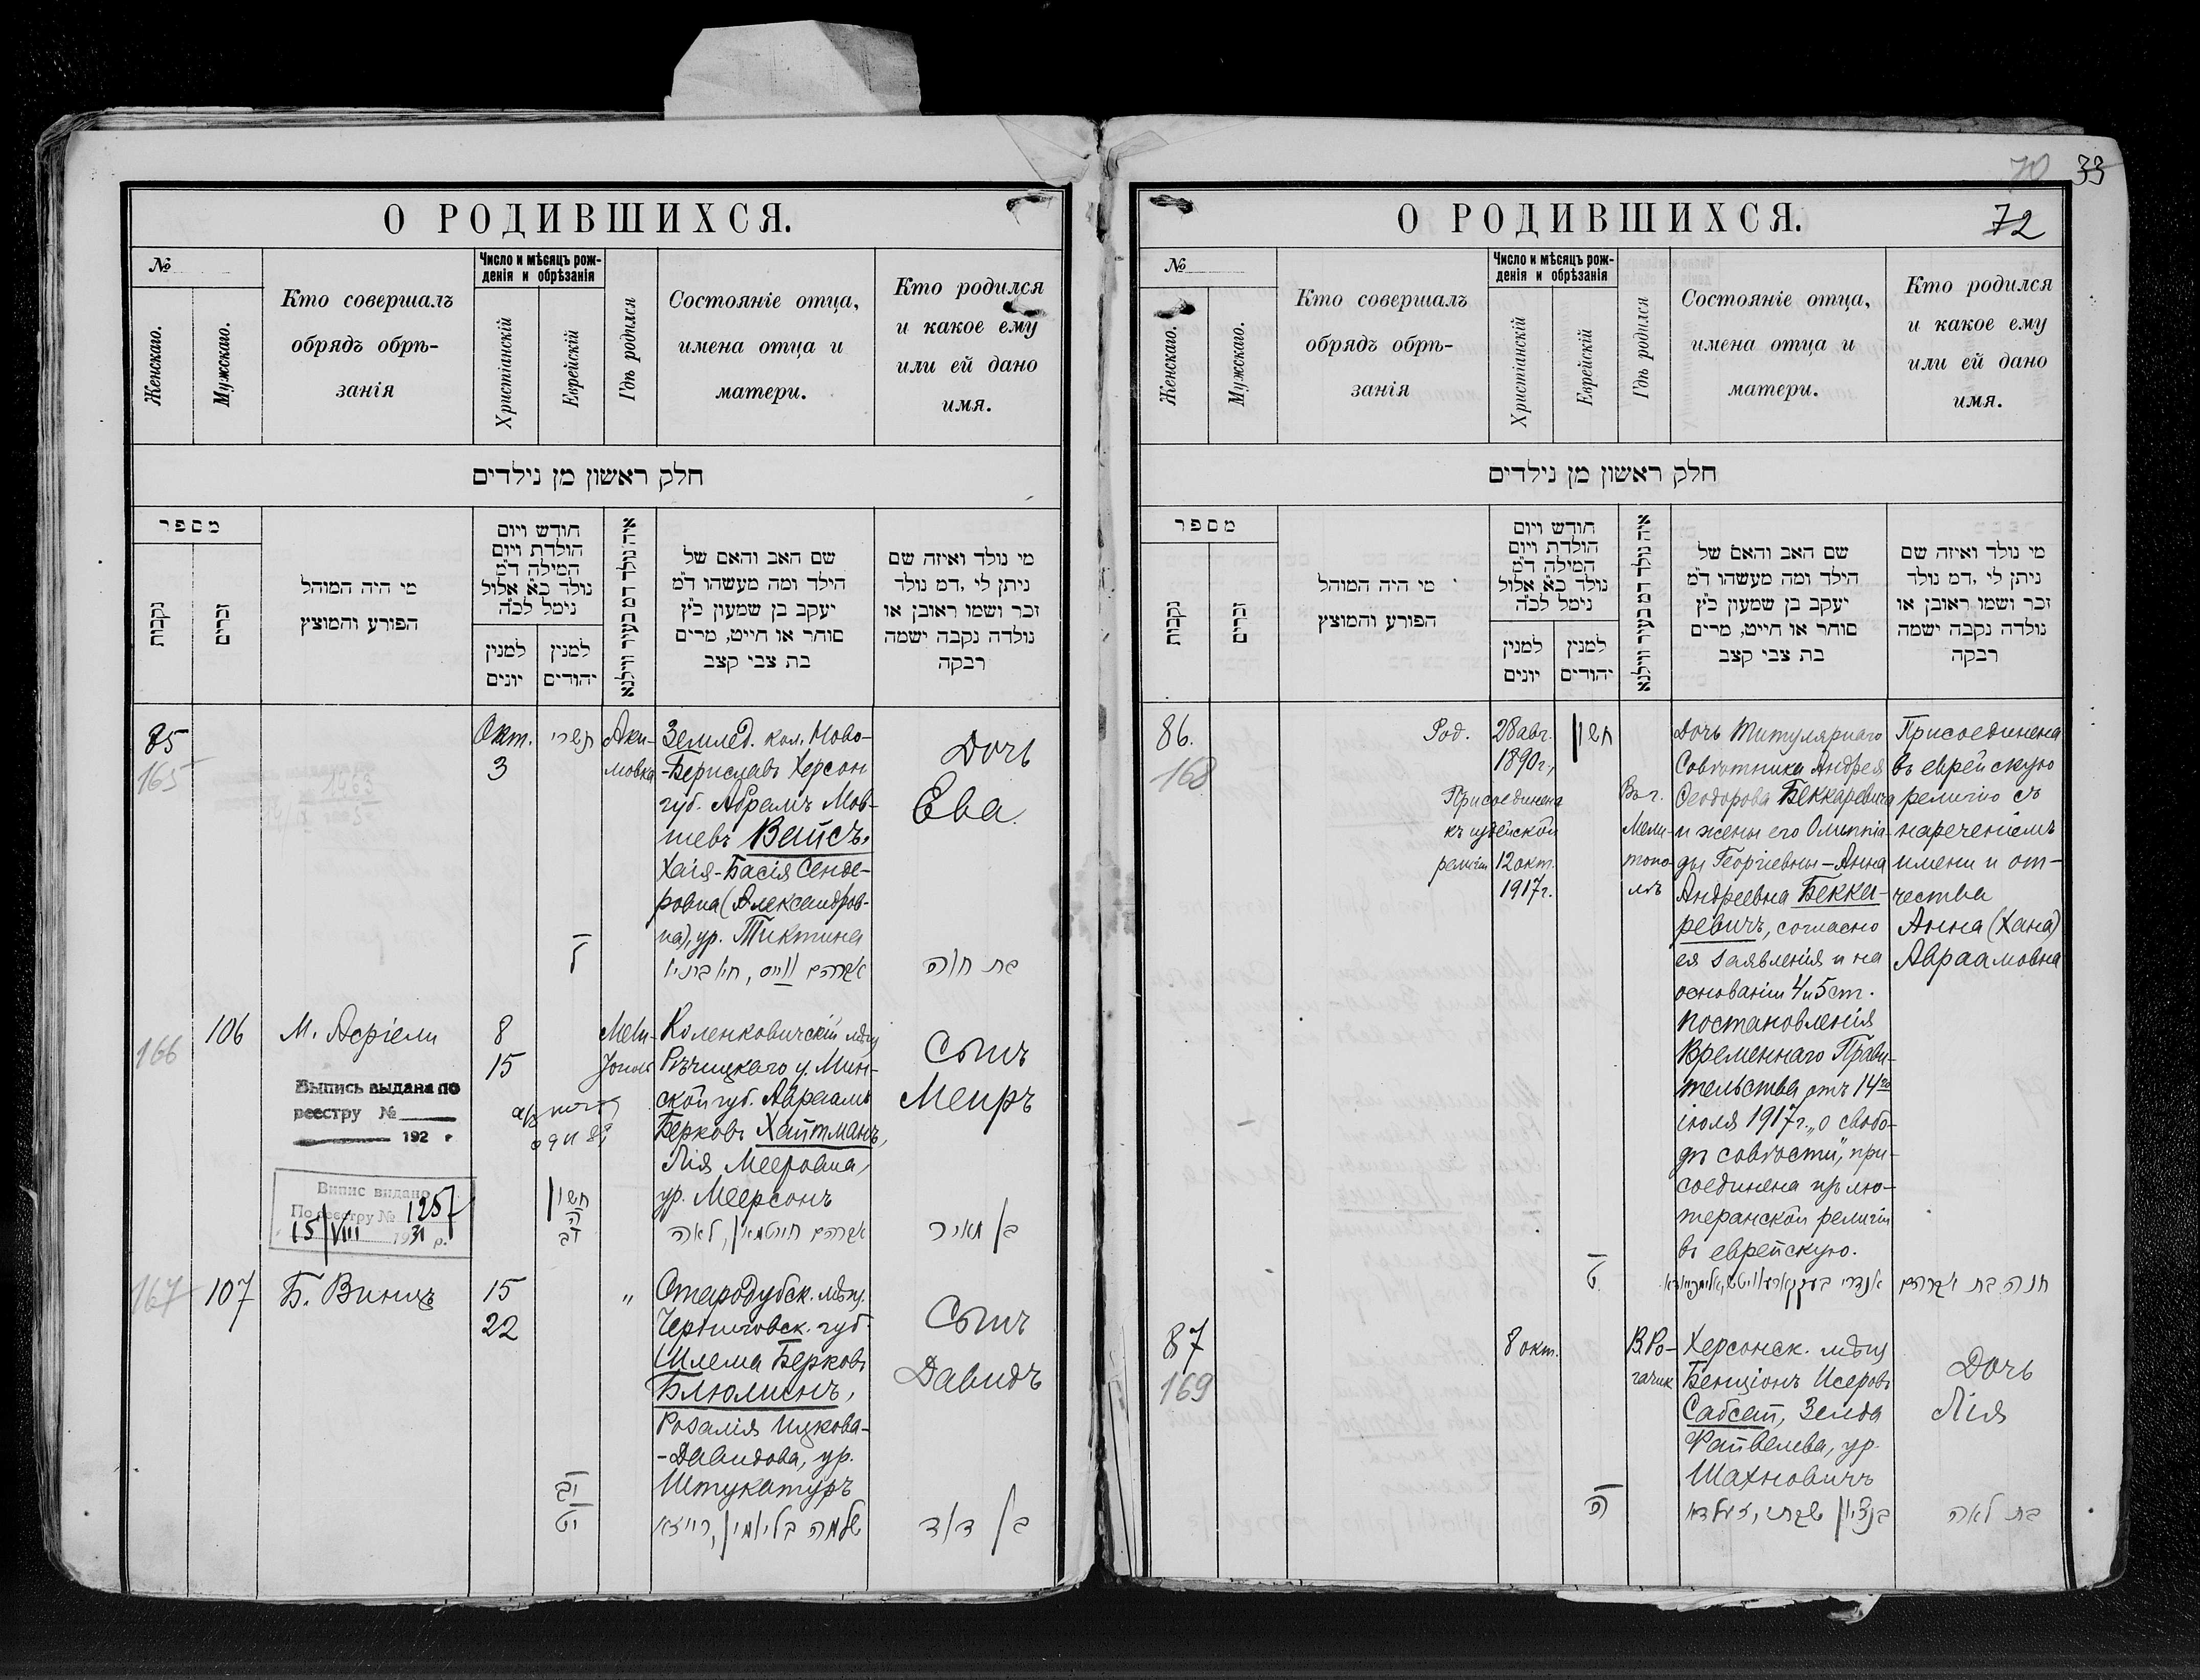 О РОДИВШИХСЯ.
№
Женскаго.
Мужскаго.
Кто совершалъ
обрядъ обрѣ-
занія
Число и мѣсяцъ рож-
денія и обрѣзанія
Христіанскій
Еврейскій
Гдѣ родился
Состояніе отца,
имена отца и
матери.
Кто родился
и какое ему
или ей дано
имя.
חלק ראשון מן נילדים
מספר
נקבות
זכרים
מי היה המוהל
הפורע והמוצץ
חודש ויום
הולדת ויום
המילה ד״מ
נולד כ״א אלול
נימל לכ״ה
למנין
יונים
למנין
יהודים
איה נולד דמ בעיר ווילנא
שם האב והאם של
הילד ומה מעשהו ד״מ
יעקב בן שמעון כ״ץ
סוחר או חייט, מרים
בת צבי קצב
מי נולד ואיזה שם
ניתן לי ,דמ נולד
זכר ושמו ראובן או
נולדה נקבה ישמה
רבקה
85
165
Окт.
3
תשרי
Аки-
мовка
Землед. кол. Ново-
-Бериславъ Херсон
губ. Абрамъ Мов-
шевъ Вейсъ,
Хая-Бася Сенде-
ровна (Александров-
на), ур. Тиктина
אברהם ווייס,
Дочь
Ева.
בת חוה
166
106
М. Асріели
Выпись выдана по
реестру №
192 г
Випис видано
По реестру № 1257
15/VIII 1931 р.
8
15
חשון
כב
Мели-
тополь
Коленковичскій мѣщ
Рѣчицкаго у. Мин-
ской губ. Авраамъ
Берковъ Хайтманъ,
Лія Мееровна,
ур. Меерсонъ
אברהם חייטמאן, לאה
Сынъ
Меиръ
בן מאיר
167
107
Б. Виницъ
15
22
"
Стародубск. мѣщ.
Черниговск. губ.
Шлема Берковъ
Блюминъ,
Розалія Ицкова-
-Давидова, ур.
Штукатуръ
שלמה בליומין, רייזא
Сынъ
Давидъ
בן דוד
70
33
О РОДИВШИХСЯ.
72
№
Женскаго.
Мужскаго.
Кто совершалъ
обрядъ обрѣ-
занія
Число и мѣсяцъ рож-
денія и обрѣзанія
Христіанскій
Еврейскій
Гдѣ родился
Состояніе отца,
имена отца и
матери.
Кто родился
и какое ему
или ей дано
имя.
חלק ראשון מן נילדים
מספר
נקבות
זכרים
מי היה המוהל
הפורע והמוצץ
חודש ויום
הולדת ויום
המילה ד״מ
נולד כ״א אלול
נימל לכ״ה
למנין
יונים
למנין
יהודים
איה נולד דמ בעיר ווילנא
שם האב והאם של
הילד ומה מעשהו ד״מ
יעקב בן שמעון כ״ץ
סוחר או חייט, מרים
בת צבי קצב
מי נולד ואיזה שם
ניתן לי ,דמ נולד
זכר ושמו ראובן או
נולדה נקבה ישמה
רבקה
86.
168
Род. 28 авг.
1890 г.,
Присоединена
къ іудейской
религіи 12 окт.
1917 г.
חשון
ט
Въ г.
Мели-
топо-
лѣ
Дочь Титулярнаго
Совѣтника Андрея
Ѳеодорова Беккаревича
и жены его Олимпіа-
ды Георгіевны - Анна
Андреевна Бекка-
ревичъ, согласно
ея заявленія и на
основаніи 4 и 5 ст.
постановленія
Временнаго Прави-
тельства отъ 14го
іюля 1917 г. „о свобо-
дѣ совѣсти", при-
соединена изъ лю-
теранской религіи
въ еврейскую.
Присоединена
въ еврейскую
религію съ
нареченіемъ
имени и от-
чества
Анна (Хана)
Авраамовна
חנה בת אברהם
87
169
8 окт.
ה
В. Ро-
гачик
Херсонск. мѣщ
Бенціонъ Исеровъ
Сабсай, Зелда
Файвелева, ур.
Шахновичъ
בנציון שבתי, זעלדא
Дочь
Лія
בת לאה